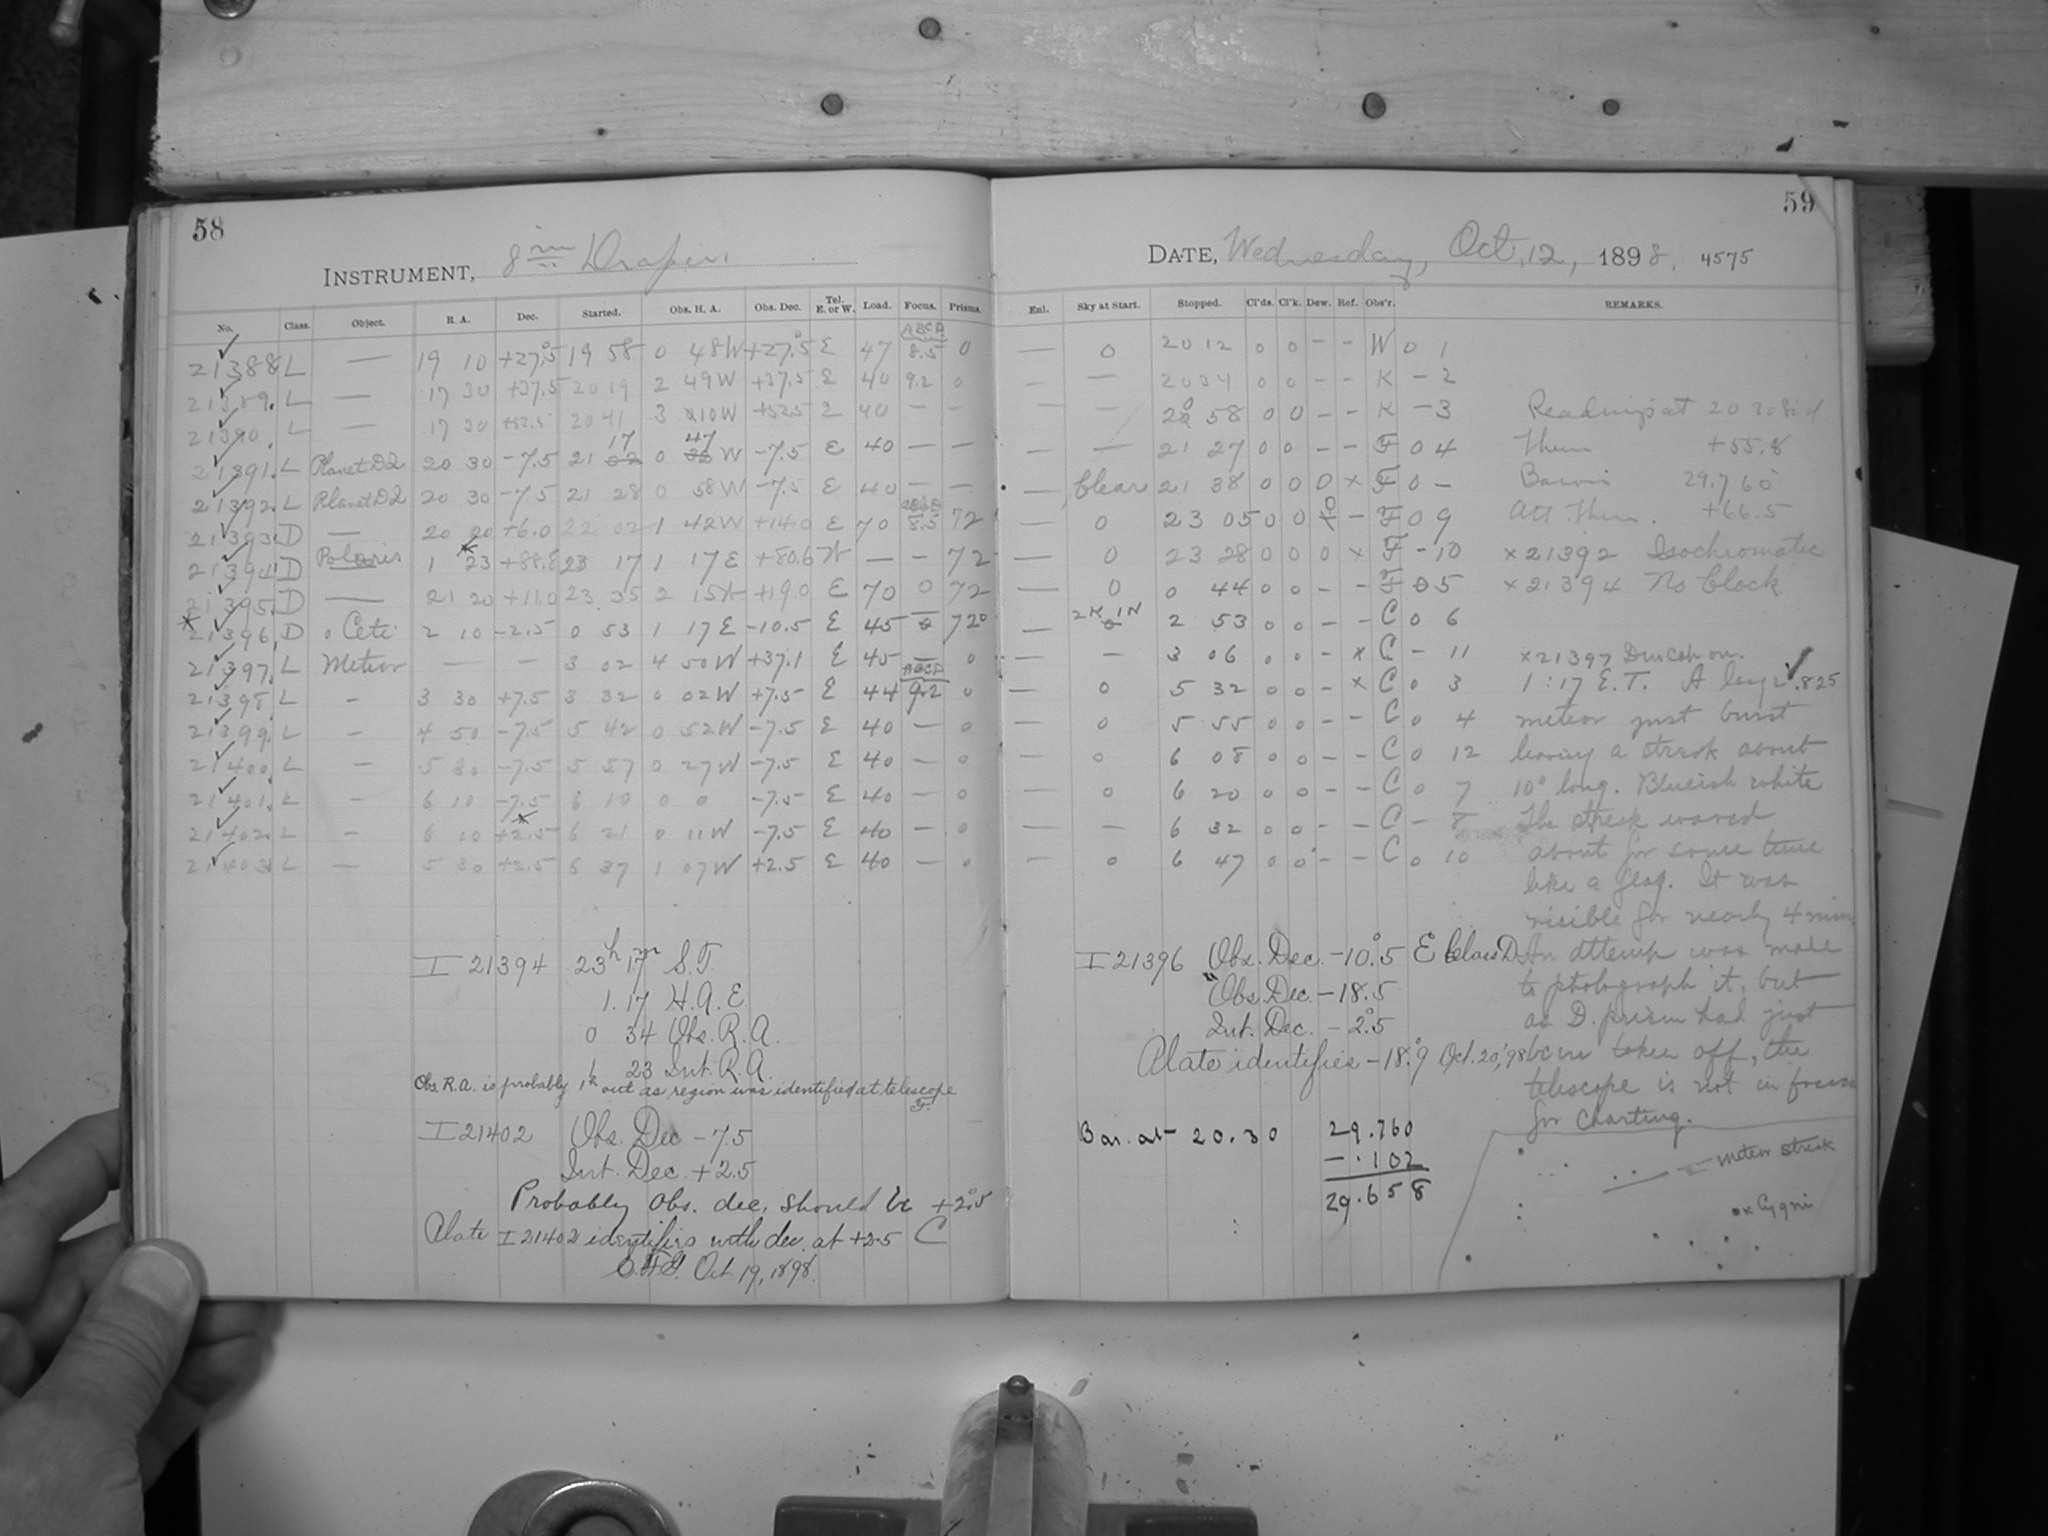 58
INSTRUMENT, 8 in Draper.
No. Class. Object. R. A. Dec. Started. Obs. H. A. Obs. Dec. Tel. E. or W. Load. Focus. Prisms.
ABCD
21388 L — 19 10 +27.5 19 58 0 48W +27.5 E 47 8.5 0
21389. L — 17 30 +37.5 20 19 2 49W +37.5 E 40 9.2 0
21390. L — 17 30 +52.5 20 41 3 10W +52.5 E 40 — —
21391. L Planet DQ 20 30 -7.5 21 17 0 47 W -7.5 E 40 — —
21392. L Planet DQ 20 30 -7.5 21 28 0 58W -7.5 E 40 — —
21393. D — 20 20 +6.0 22 02 1 42W +14.0 E 70 8.5 72
21394. D Polaris 1 23 +88.8 23 17 1 17E +80.6 — — 72
21395. D — 21 20 +11.0 23 35 2 15W +19.0 E 70 0 72
21396. D o Ceti 2 10 -2.5 0 53 1 17E -10.5 E 45 0 720
21397. L Meteor — — 3 02 4 50W +37.1 E 45 — 0
ABCD
21398. L - 3 30 +7.5 3 32 0 02W +7.5 E 44 9.2 0
21399. L - 4 50 -7.5 5 42 0 52W -7.5 E 40 — 0
21400. L - 5 30 -7.5 5 57 0 27W -7.5 E 40 — 0
21401. L - 6 10 -7.5 6 10 0 0 -7.5 E 40 — 0
21402. L - 6 10 +2.5 6 21 0 11W -7.5 E 40 — 0
21403. L — 5 30 +2.5 6 37 1 07W +2.5 E 40 — 0
I 21394 23h 17m S.T.
1. 17 H.A. E
0 34 Obs. R.A.
1 23 Int. R.A.
Obs. R.A. is probably 1h out as region was identified at telescope
F.
I 21402 Obs. Dec -7.5
Int. Dec. +2.5
Probably Obs. dec. should be +2.5
Plate I 21402 identifies with dec. at +2.5 C
Oct. 19, 1898.
59
DATE, Wednesday, Oct. 12, 1898. 4575
Enl. Sky at Start. Stopped. Cl'ds. Cl'k. Dew. Ref. Obs'r. REMARKS.
— 0 20 12 0 0 - - W 0 1
— — 20 34 0 0 - - K - 2
— 20 58 0 0 - - K - 3 Readings at 20 30 Sid
— — 21 27 0 0 - - F 0 4 Them +55.8
— Clear 21 38 0 0 0 × F 0 - Barom 29.760
— 0 23 05 0 0 - F 0 9 Att Them. +66.5
— 0 23 28 0 0 0 × F - 10 × 21392 Isochromatic
— 0 0 44 0 0 - - F 0 5 × 21394 No Clock
— 2K 1N 2 53 0 0 - - C 0 6
— - 3 06 0 0 - × C - 11 × 21397 Dewcap on.
— 0 5 32 0 0 - × C 0 3 1:17 E.T. A large .825
— 0 5 55 0 0 - - C 0 4 meteor just burst
— 0 6 08 0 0 - - C 0 12 leaving a streak about
— 0 6 20 0 0 - - C 0 7 10° long. Blueish white
— — 6 32 0 0 - - C - 8 The streak waved
— 0 6 47 0 0 - - C 0 10 about for some time
like a flag. It was
visible for nearly 4 min.
An attemp was made
to photograph it, but
as D. prism had just
been taken off, the
telescope is not in focus
for charting.
I 21396 Obs. Dec. -10.5 E Class D.
" Obs. Dec. -18.5
Int. Dec. -2.5
Plate identifies -18.9 Oct. 20, '98
Bar. at 20.30 29.760
-.102
29.658
= meteor streak
α Cygni